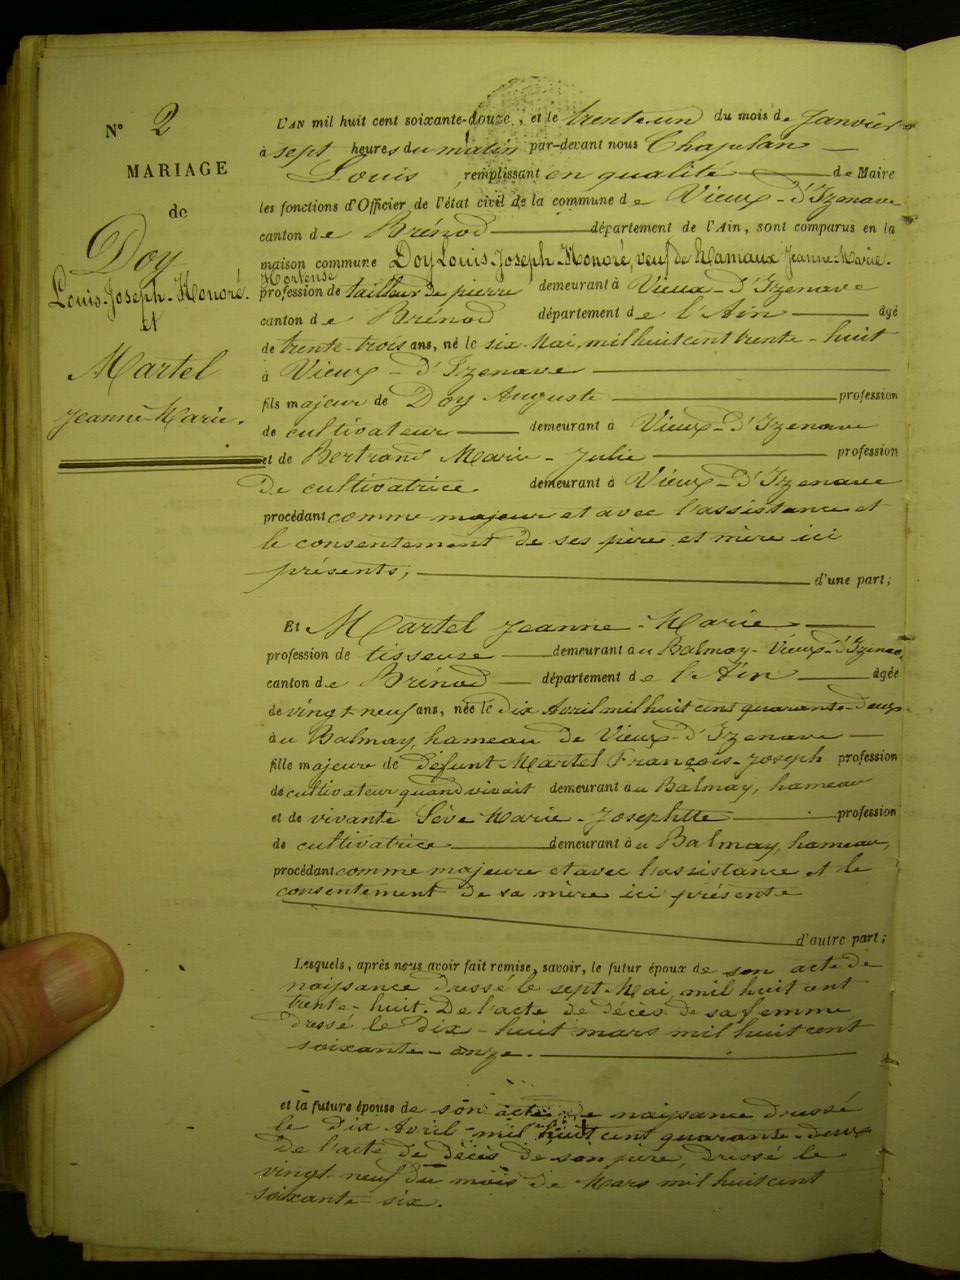 N° 2
MARIAGE
de
Doy
Louis-Joseph-Honoré.
et
Martel
Jeanne-Marie.
L'AN mil huit cent soixante-douze, et le trente-un du mois de Janvier
à sept heures du matin par-devant nous Chapelan
Louis remplissant en qualité de Maire
les fonctions d'Officier de l'état civil de la commune de Vieux-d'Izenave
canton de Brénod département de l'Ain, sont comparus en la
maison commune Doy Louis-Joseph-Honoré, veuf de Mamaux Jeanne-Marie-
Hortense
profession de tailleur de pierre demeurant à Vieux-d'Izenave
canton de Brénod département de l'Ain âgé
de trente-trois ans, né le six Mai, mil huit cent trente-huit
à Vieux-d'Izenave
fils majeur de Doy Auguste profession
de cultivateur demeurant à Vieux-d'Izenave
et de Bertrand Marie-Julie profession
de cultivatrice. demeurant à Vieux-d'Izenave
procédant comme majeur et avec l'assistance et
le consentement de ses père et mère ici
présents, d'une part;
Et Martel Jeanne-Marie
profession de tisseuse demeurant au Balmay-Vieux-d'Izenave,
canton de Brénod département de l'Ain âgée
de vingt neuf ans, née le dix Avril mil huit cent quarante-deux
au Balmay, hameau de Vieux-d'Izenave
fille majeure de défunt Martel François-Joseph profession
de cultivateur quand vivait demeurant au Balmay, hameau
et de vivante Sève Marie-Josephtte profession
de cultivatrice demeurant au Balmay, hameau,
procédant comme majeure et avec l'assistance et le
consentement de sa mère ici présente
d'autre part;
Lesquels, après nous avoir fait remise, savoir, le futur époux de son acte de
naissance dressé le sept Mai mil huit cent
trente-huit. De l'acte de décès de sa femme
dressé le dix-huit mars mil huit cent
soixante-onze.
et la future épouse de son acte de naissance dressé
le dix Avril-mil huit cent quarante-deux
De l'acte de décès de son père, dressé le
vingt-neuf du mois de Mars mil huit cent
soixante six.